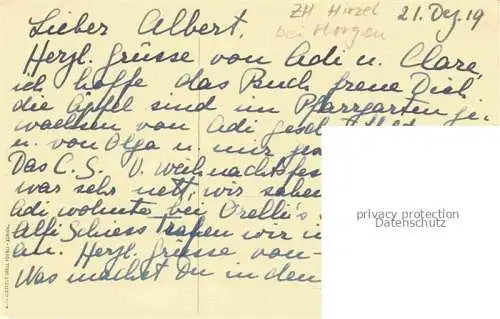 ZH Hirzel
bei Horgen
21. Dez. 19
Lieber Albert.
Herzl. Grüsse von Adi u. Clare,
ich hoffe das Buch freue Dich
die Äpfel sind im Pfarrgarten ge-
wachsen von Adi
u. von Olga u. mir
Das C. S. V. Weihnachtsfes
war sehr nett, wir sahen
Adi wohnte bei Orelli's
Alfi Schiess trafen wir
an. Herzl. Grüsse von
Was machst Du in den
privacy protection
Datenschutz